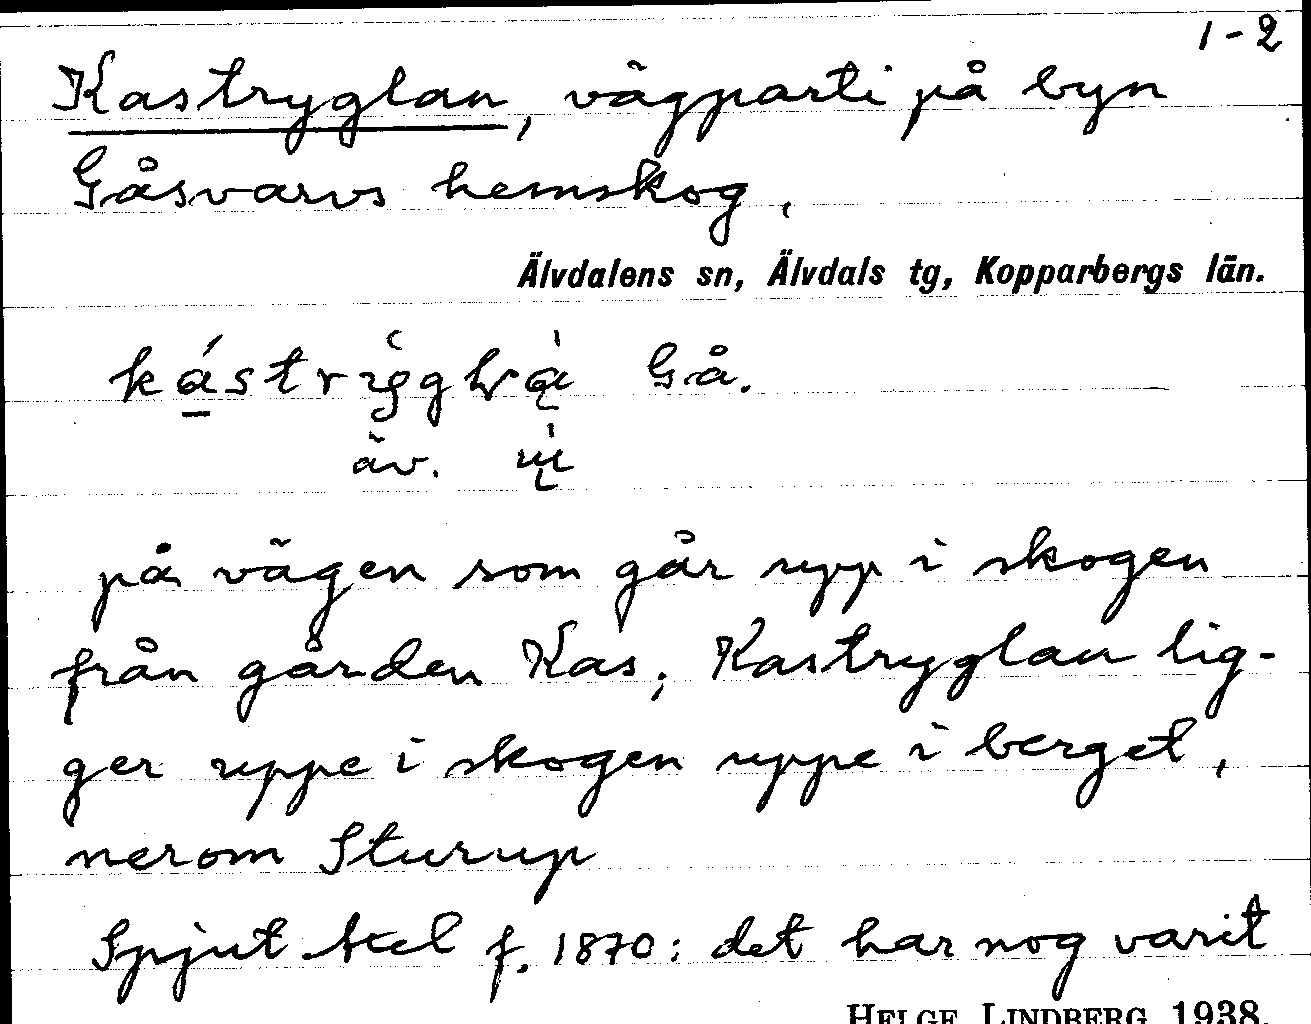 1-2
Kastryglan, vägparti på byn
Gåsvarvs hemskog,
Älvdalens sn, Älvdals tg, Kopparbergs län.
Gå.
äv.
på vägen som går upp i skogen
från gården Kas; Kastryglan lig-
ger uppe i skogen uppe i berget,
nerom Sturup
Spjut Axel f. 1870: det har nog varit
HELGE LINDBERG 1938.